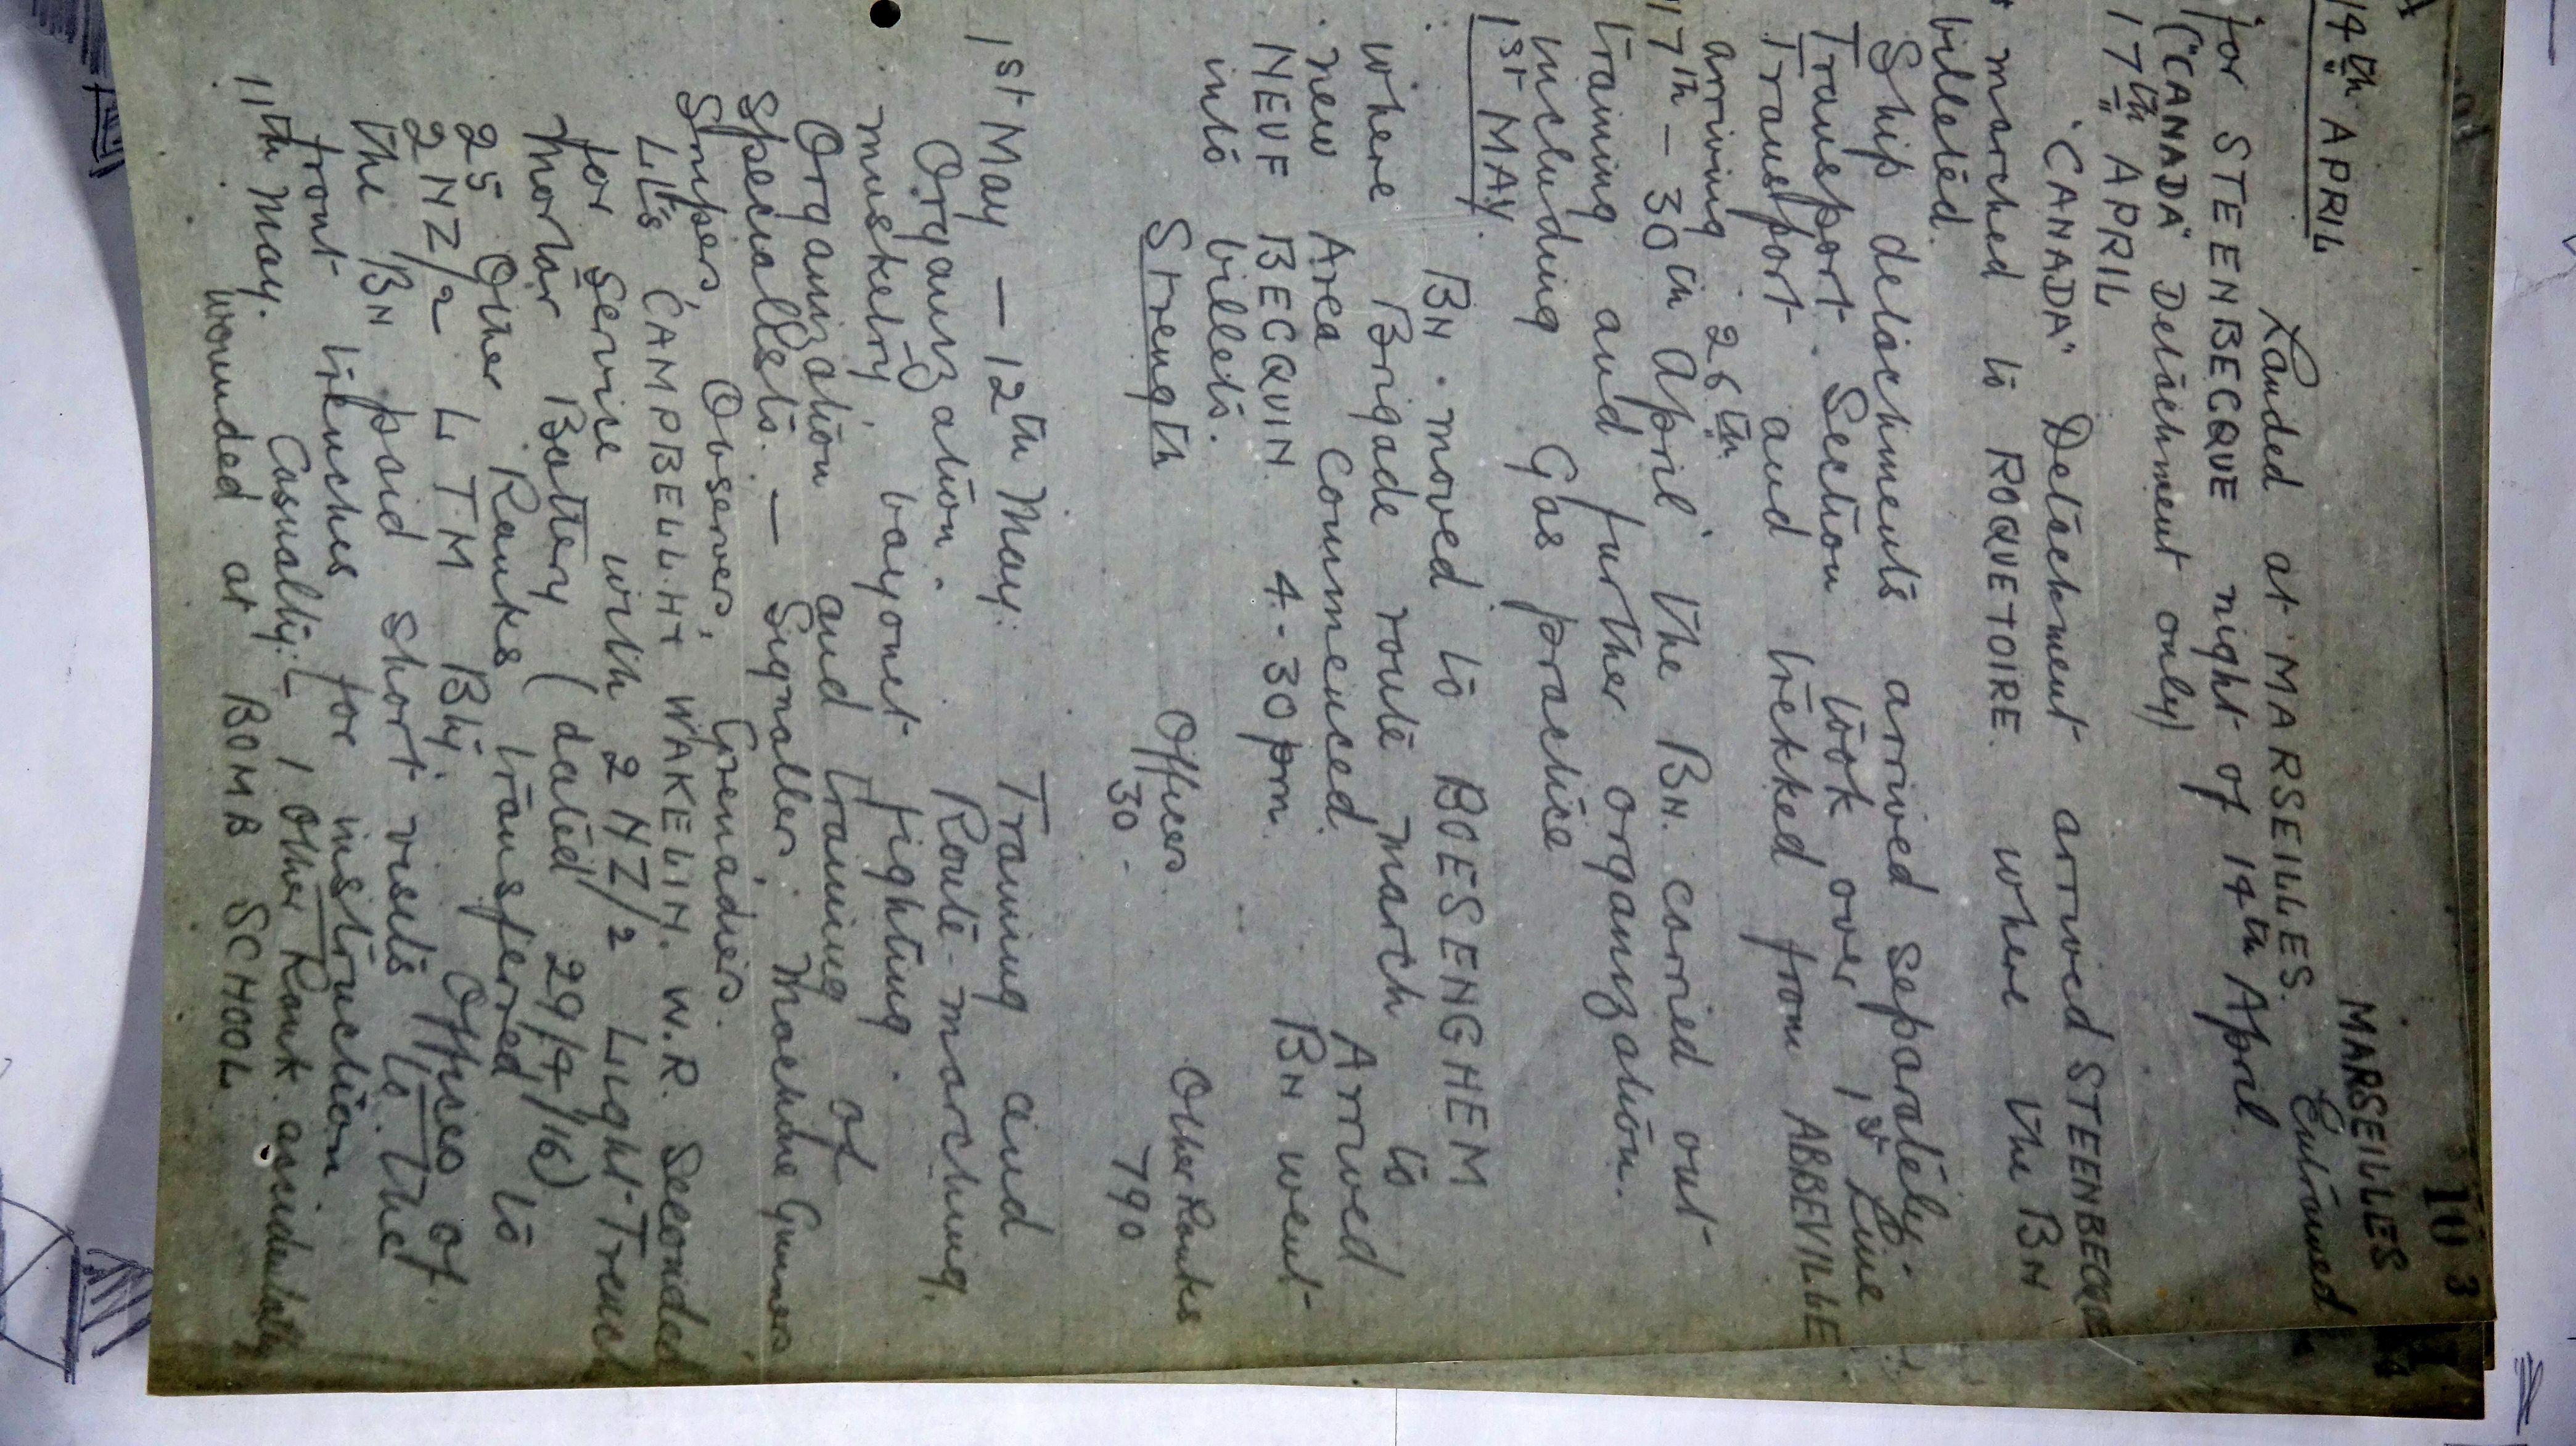 10 3
MARSEILLES
14th APRIL
Landed at MARSEILLES. Entrained
for STEENBECQUE night of 14th April.
("CANADA" Detachment only)
17th APRIL
"CANADA" Detachment arrived STEENBECQUE
marched to ROQUETOIRE where the BN
billeted.
Ship detachments arrived separately.
Transport Section took over 1st Line
Transport and trekked from ABBEVILLE
arriving 26th
17th - 30th April the BN. carried out
training and further organization.
including Gas practice
1st MAY
BN. moved to BOESENGHEM
where Brigade route march to
new Area Commenced. Arrived
NEUF BECQUIN 4-30pm. BN went
into billets.
Strength Officers Other Ranks
30. 790
1st May - 12th May: Training and
Organization. Route-marching,
musketry, bayonet fighting.
Organization and training of
Specialists. - Signaller. Machine Gunners
Snipers Observers, Grenadiers.
Lt's CAMPBELL. HT WAKELIN. W.R. Seconded
for Service with 2 NZ/2 Light-Trench
Mortar Battery (dated 29/4/16)
25 Other Ranks transferred to
2NZ/2 LTM Bty. Officers of
the BN paid short visits to the
front trenches for instruction
11th May. Casualty:- 1 Other Rank accidentally
wounded at BOMB SCHOOL